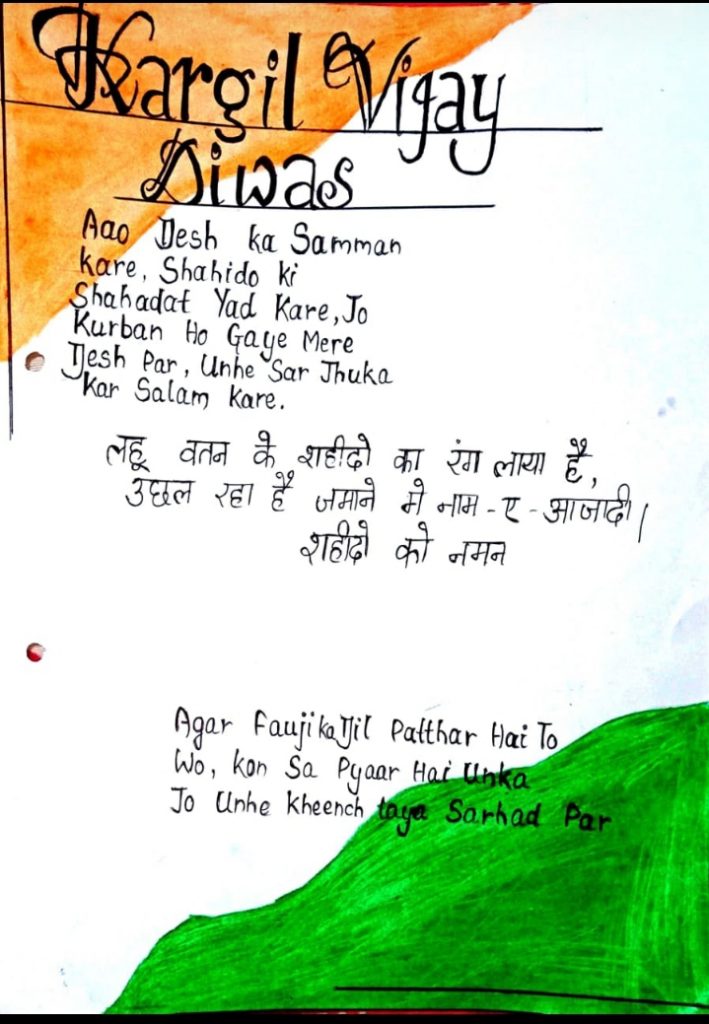 Kargil Vijay
Diwas
Aao Desh ka Samman
kare, Shahido ki
Shahadat Yad Kare, Jo
Kurban Ho Gaye Mere
Desh Par, Unhe Sar Jhuka
Kar Salam Kare.
लहू वतन के शहीदो का रंग लाया है,
उछल रहा है जमाने मे नाम-ए-आजादी।
शहीदो को नमन
Agar Fauji ka Dil Patthar Hai To
Wo, kon Sa Pyaar Hai Unka
Jo Unhe kheench taya Sarhad Par